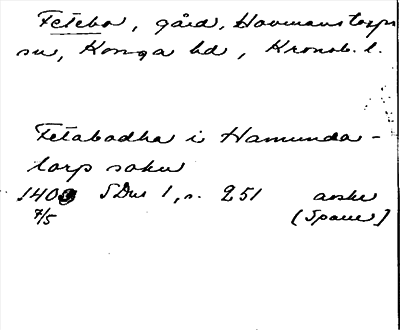 Fetebo, gård, Hovmanstorps
sn, Konga hd, Kronob. l.
Fetabodha i Hamunda-
torp sokn
140 SDns 1, s. 251 avskr
7/5 (Spauer]